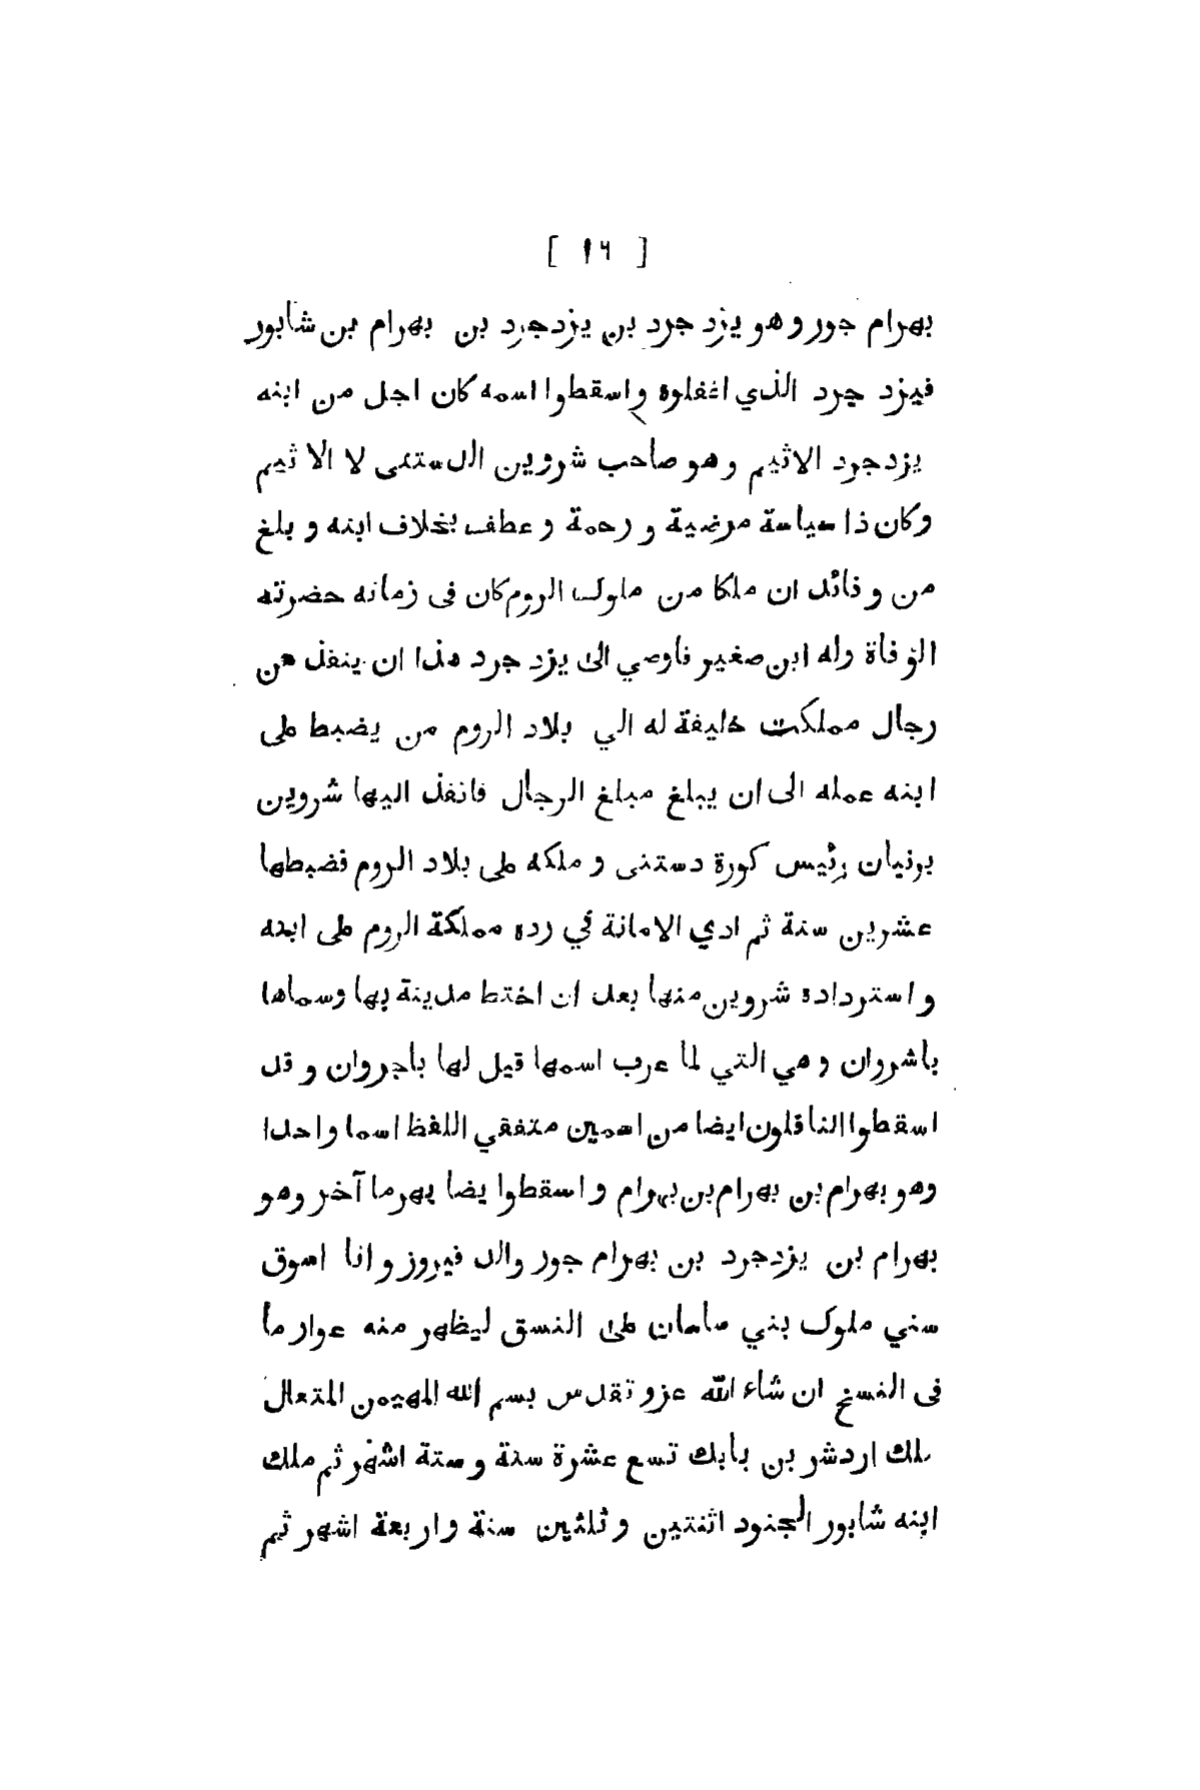 [ ١٦ ]
بهرام جور وهو يزد جرد بن يزدجرد بن بهرام بن شابور
فيزد جرد الذي اغفلوه واسقطوا اسمه كان اجل من ابنه
يزدجرد الاثيم وهو صاحب شروين الدستبى لا الاثيم
وكان ذا سياسة مرضية و رحمة و عطف بخلاف ابنه و بلغ
من وفائه ان ملكا من ملوك الروم كان فى زمانه حضرته
الوفاة وله ابن صغير فاوصي الى يزد جرد هذا ان ينفذ من
رجال مملكته خليفة له الي بلاد الروم من يضبط على
ابنه عمله الى ان يبلغ مبلغ الرجال فانفذ اليها شروين
برنيان رئيس كورة دستبى و ملكه على بلاد الروم فضبطها
عشرين سنة ثم ادي الامانة في رده مملكة الروم على ابنه
و استرداده شروين منها بعد ان اختط مدينة بها وسماها
باشروان وهي التي لما عرب اسمها قيل لها باجروان و قد
اسقطوا الناقلون ايضا من اسمين متفقي اللفظ اسما واحدا
وهو بهرام بن بهرام بن بهرام و اسقطوا يضا بهرما آخر وهو
بهرام بن يزدجرد بن بهرام جور والد فيروز و انا اسوق
سني ملوك بني ساسان على النسق ليظهر منه عوار ما
فى النسخ ان شاء الله عز و تقدس بسم الله المهيمن المتعال
ملك اردشر بن بابك تسع عشرة سنة و ستة اشهر ثم ملك
ابنه شابور الجنود اثنتين و ثلثين سنة و اربعة اشهر ثم